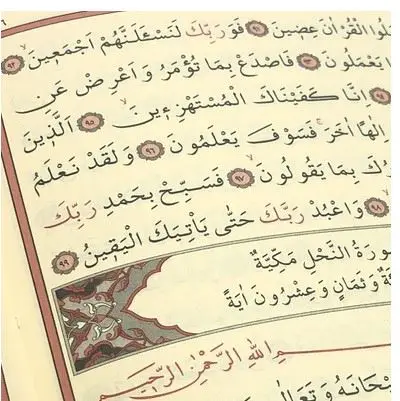 الْقُرْاٰنَ عِضٖينَ ﴿٩١﴾ فَوَرَبِّكَ لَنَسْـَٔلَنَّهُمْ اَجْمَعٖينَ ﴿٩٢﴾
يَعْمَلُونَ ﴿٩٣﴾ فَاصْدَعْ بِمَا تُؤْمَرُ وَاَعْرِضْ عَنِ
﴿٩٤﴾ اِنَّا كَفَيْنَاكَ الْمُسْتَهْزِءٖينَ ﴿٩٥﴾ اَلَّذٖينَ
اِلٰهًا اٰخَرَ فَسَوْفَ يَعْلَمُونَ ﴿٩٦﴾ وَلَقَدْ نَعْلَمُ
بِمَا يَقُولُونَ ﴿٩٧﴾ فَسَبِّحْ بِحَمْدِ رَبِّكَ
﴿٩٨﴾ وَاعْبُدْ رَبَّكَ حَتّٰى يَأْتِيَكَ الْيَقٖينُ ﴿٩٩﴾
سُورَةُ النَّحْلِ مَكِّيَّةٌ
وَثَمَانٍ وَعِشْرُونَ اٰيَةً
اللّٰهِ الرَّحْمٰنِ الرَّحٖيمِ